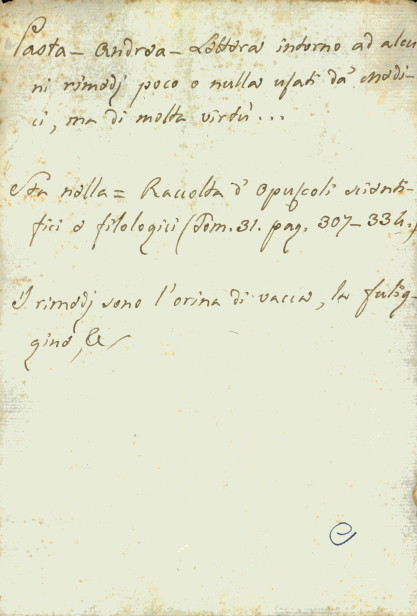 Pasta - Andrea - Lettera intorno ad alcu
ni rimedj poco o nulla usati da' Medi-
ci, ma di molta virtù ...
Sta nella = Raccolta d'Opuscoli scienti-
fici e filologici (Tom. 31. pag. 307-334.)
I rimedj sono l'orina di vacca, la fulig-
gine, &c